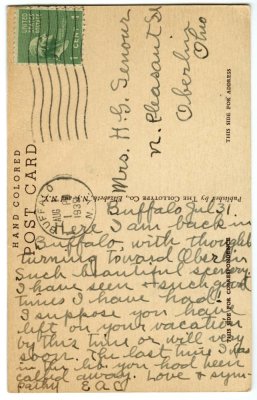 UNITED STATES POSTAGE
1 CENT 1
HAND COLORED
POST CARD
BUFFALO
AUG
1939
N.
Mrs. H. G. Senour
N. Pleasant St
Oberlin
Ohio
THIS SIDE FOR ADDRESS
Published by THE COLLOTYPE CO., Elizabeth, N. J. and N. Y.
THIS SIDE FOR CORRESPONDENCE
Buffalo Jul 31.
Here I am back in
Buffalo with thoughts
turning toward Oberlin
Such beautiful scenery
I have seen & such good
times I have had!
I suppose you have
left on your vacation
by this time or will very
soon. The last time I was
in the lib. you had been
called away. Love & sym-
pathy E A C